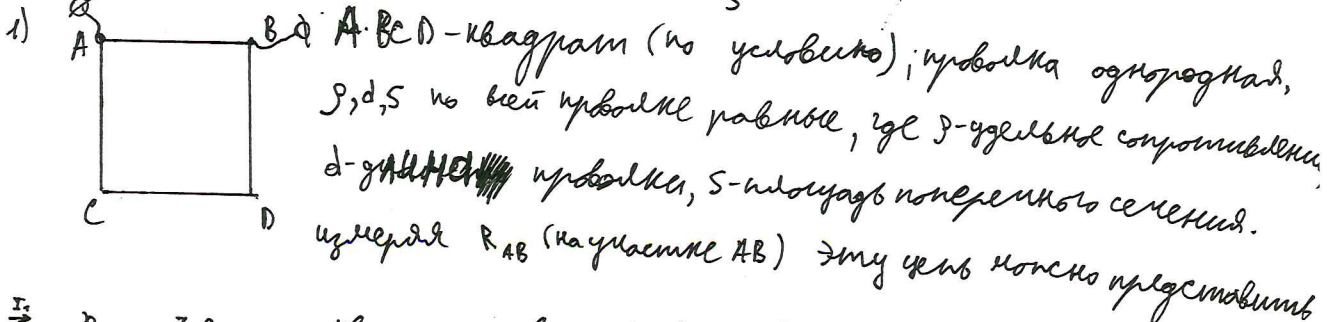 1) A B A.BCD-квадрат (по условию); проволка однородная,
ρ, d, S по всей проволке равные, где ρ-удельное сопротивлени
d-длина проволки, S-площадь поперечного сечения.
C D
измеряя R_AB (на участке AB) эту цепь можно представить
I₁